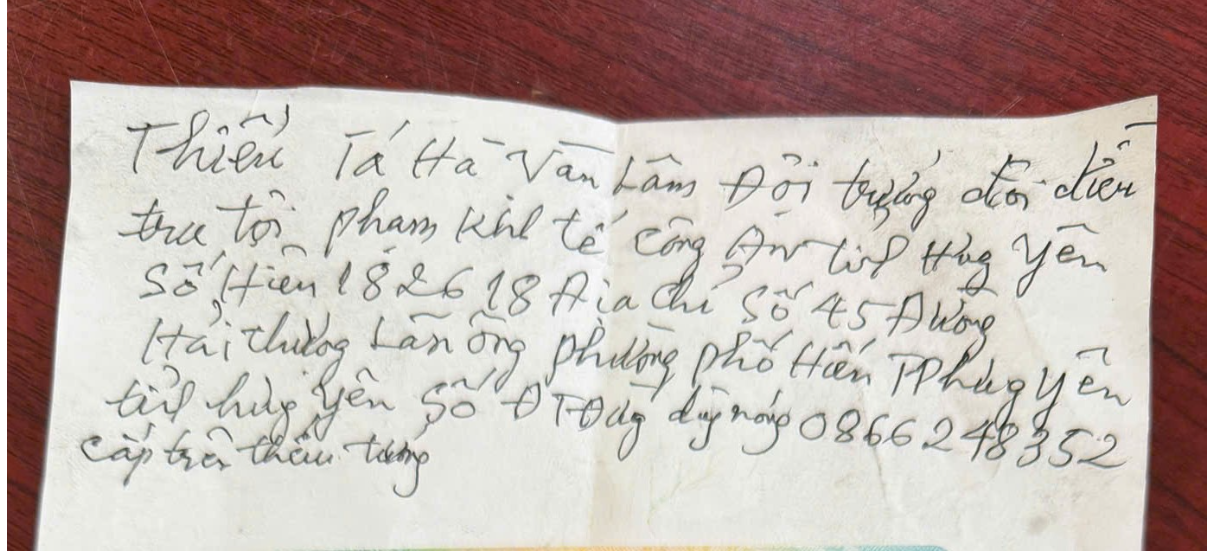 Thiếu Tá Hà Văn Lâm Đội trưởng đội điều
tra tội phạm Kinh tế công An tỉnh Hưng Yên
Số Hiệu 182618 Địa chỉ Số 45 Đường
Hải thượng Lãn ông phường phố Hiến TP hưng yên
tỉnh hưng yên Số ĐT đường dây nóng 0866248352
cấp trên thiếu tướng